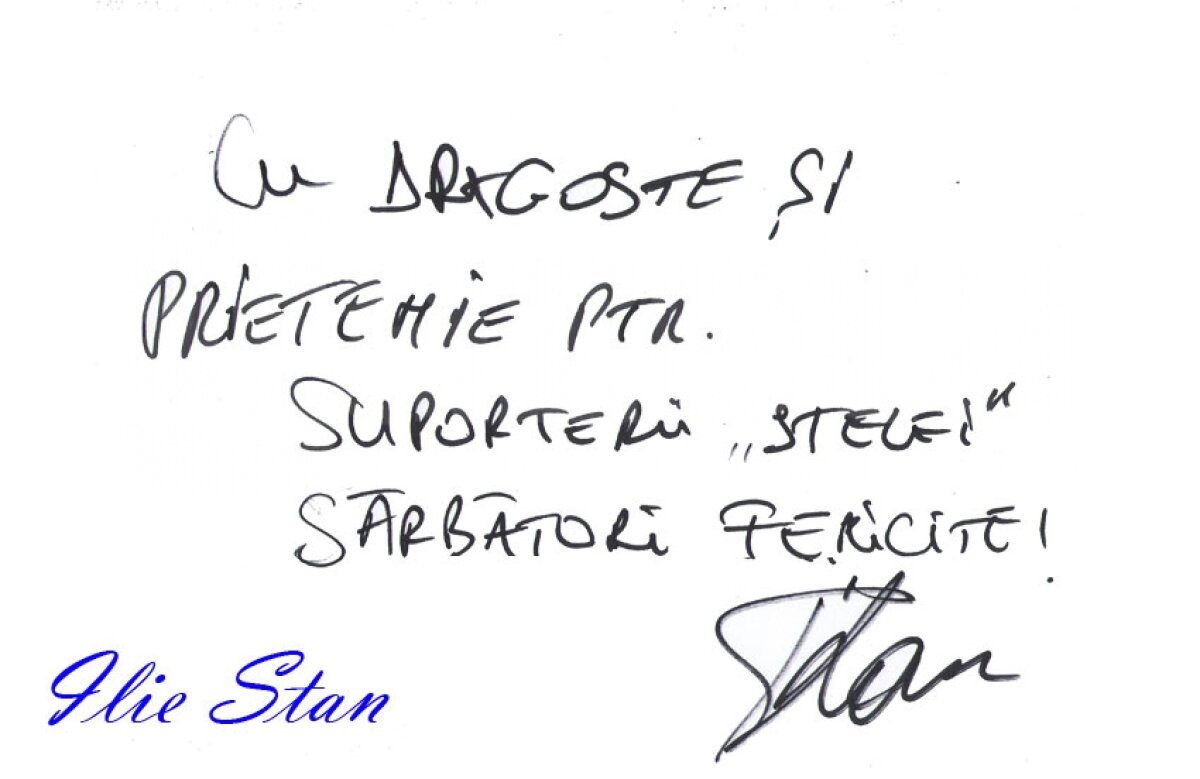 Cu DRAGOSTE ȘI
PRIETENIE PTR.
SUPORTERII „STELEI"
SĂRBĂTORI FERICITE!
Stan
Ilie Stan